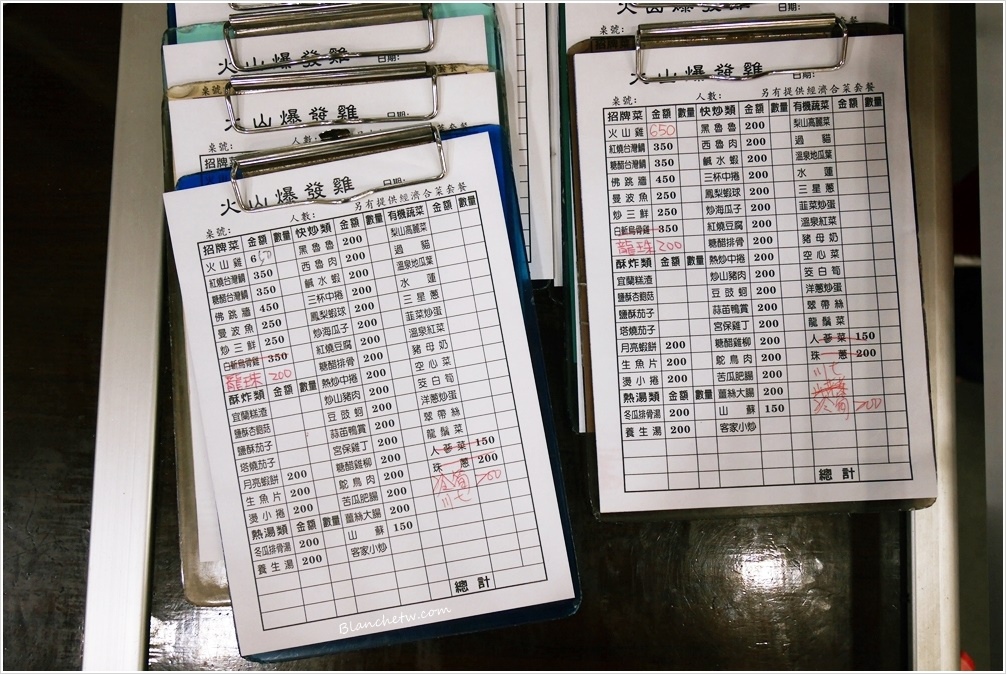 火山爆發雞 日期:
火山爆發雞 日期:
桌號:
火山爆發雞
桌號: 人數:
招牌菜
火山爆發雞
桌號: 人數: 另有提供經濟合菜套餐
招牌菜 金額 數量 快炒類 金額 數量 有機蔬菜 金額 數量
火山雞 650 黑魯魯 200 梨山高麗菜
紅燒台灣鯛 350 西魯肉 200 過貓
糖醋台灣鯛 350 鹹水蝦 200 溫泉地瓜葉
佛跳牆 450 三杯中捲 200 水蓮
曼波魚 250 鳳梨蝦球 200 三星蔥
炒三鮮 250 炒海瓜子 200 韮菜炒蛋
白斬烏骨雞 350 紅燒豆腐 200 溫泉紅菜
龍珠 200 糖醋排骨 200 豬母奶
酥炸類 金額 數量 熱炒中捲 200 空心菜
宜蘭糕渣 炒山豬肉 200 茭白筍
鹽酥杏鮑菇 豆豉蚵 200 洋蔥炒蛋
鹽酥茄子 蒜苗鴨賞 200 翠帶絲
塔燒茄子 宮保雞丁 200 龍鬚菜
月亮蝦餅 200 糖醋雞柳 200 人蔘菜 150
生魚片 200 鴕鳥肉 200 珠蔥 200
燙小捲 200 苦瓜肥腸 200 200
熱湯類 金額 數量 薑絲大腸 200 川七
冬瓜排骨湯 200 山蘇 150
養生湯 200 客家小炒
總計
Blanchetw.com
火山爆發雞
火山爆發雞 日期:
桌號: 人數: 另有提供經濟合菜套餐
招牌菜 金額 數量 快炒類 金額 數量 有機蔬菜 金額 數量
火山雞 650 黑魯魯 200 梨山高麗菜
紅燒台灣鯛 350 西魯肉 200 過貓
糖醋台灣鯛 350 鹹水蝦 200 溫泉地瓜葉
佛跳牆 450 三杯中捲 200 水蓮
曼波魚 250 鳳梨蝦球 200 三星蔥
炒三鮮 250 炒海瓜子 200 韮菜炒蛋
白斬烏骨雞 350 紅燒豆腐 200 溫泉紅菜
龍珠 200 糖醋排骨 200 豬母奶
酥炸類 金額 數量 熱炒中捲 200 空心菜
宜蘭糕渣 炒山豬肉 200 茭白筍
鹽酥杏鮑菇 豆豉蚵 200 洋蔥炒蛋
鹽酥茄子 蒜苗鴨賞 200 翠帶絲
塔燒茄子 宮保雞丁 200 龍鬚菜
月亮蝦餅 200 糖醋雞柳 200 人蔘菜 150
生魚片 200 鴕鳥肉 200 珠蔥 200
燙小捲 200 苦瓜肥腸 200 川七
熱湯類 金額 數量 薑絲大腸 200
冬瓜排骨湯 200 山蘇 150 200
養生湯 200 客家小炒
總計